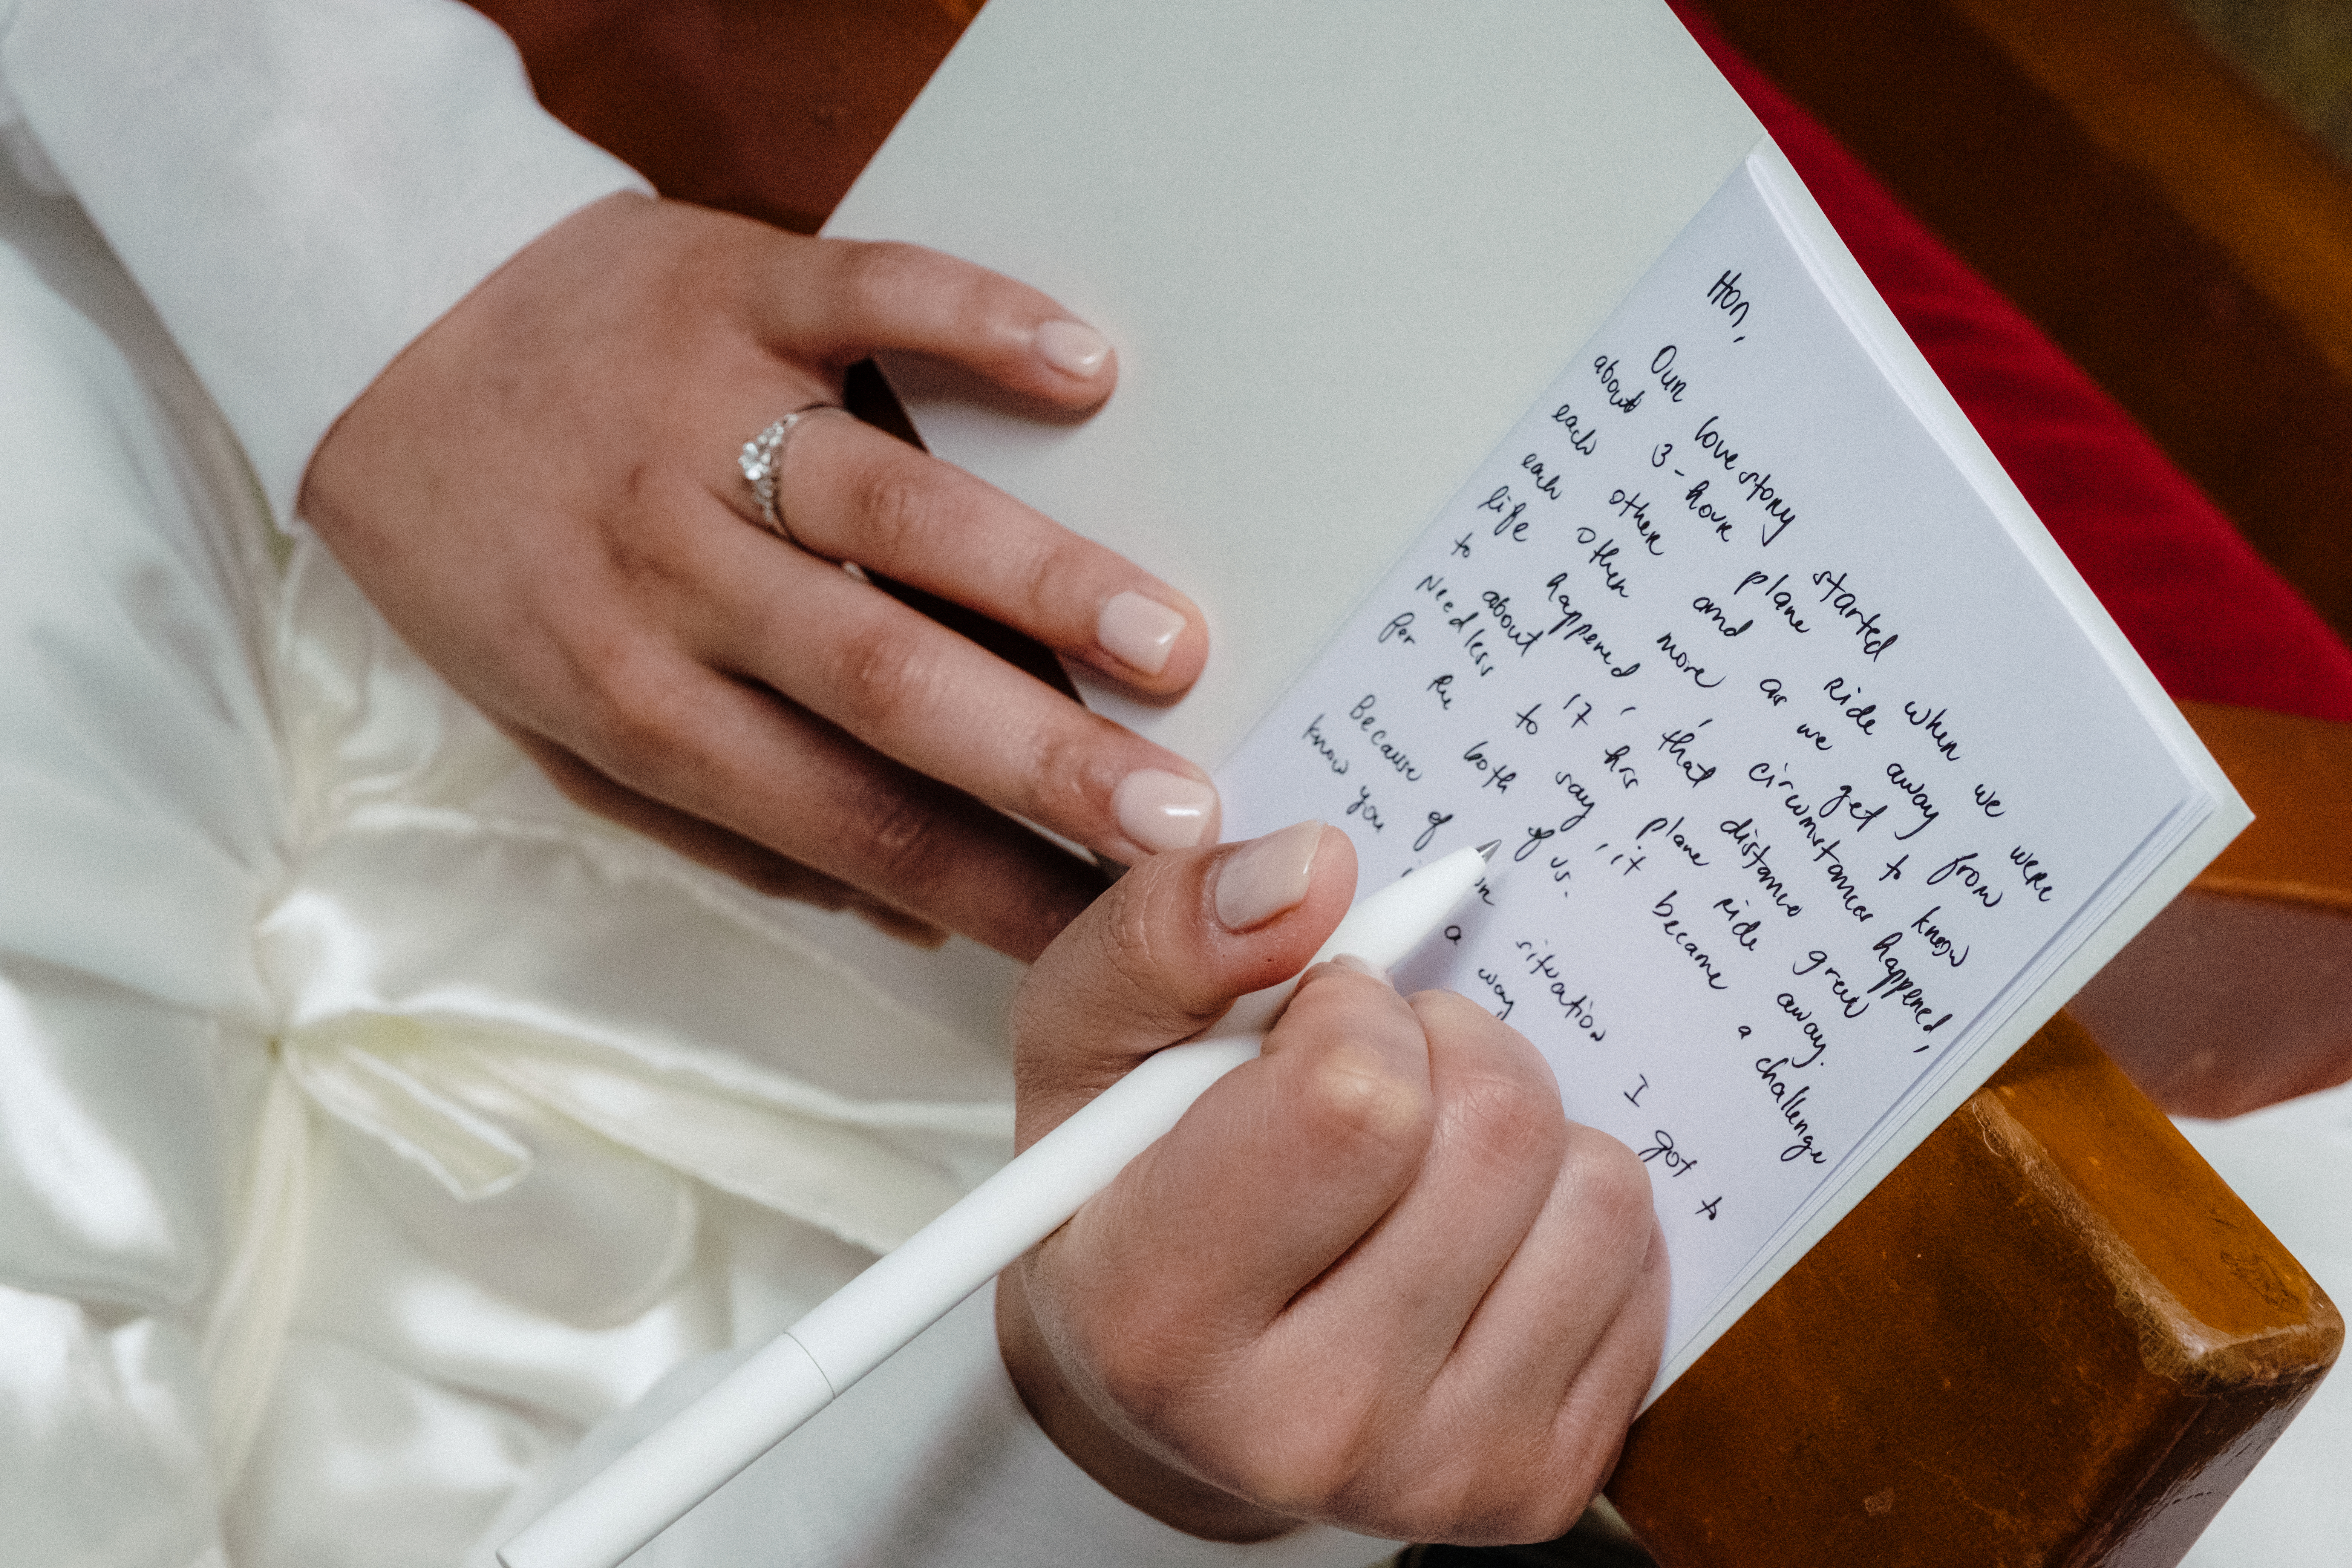 Hon,
Our love story started when we were
about 3-hour plane ride away from
each other and as we get to know
each other more, circumstances happened,
life happened, that distance grew
to about 17 hrs plane ride away.
Needless to say, it became a challenge
for the both of us.
Because of situation I got to
know you a way